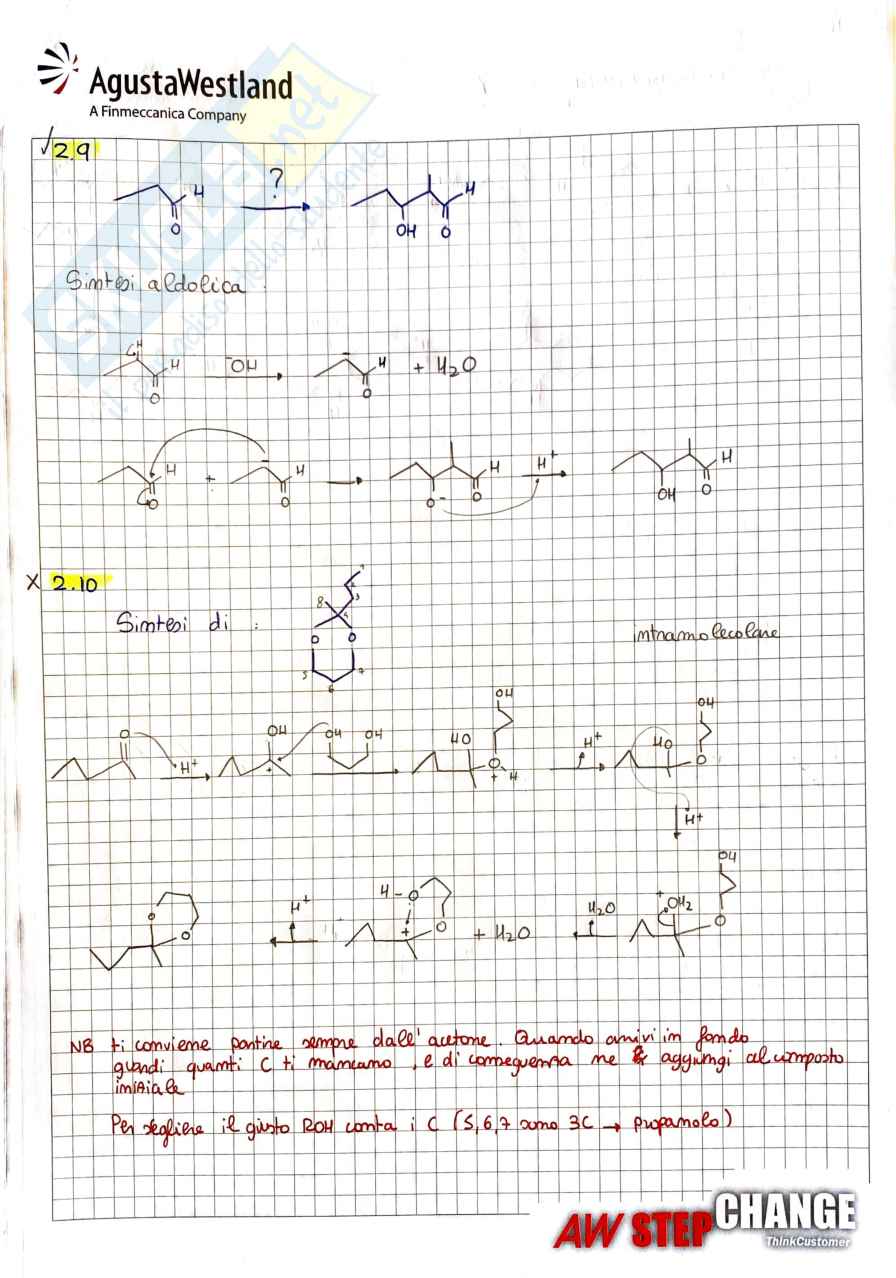 AgustaWestland
A Finmeccanica Company
√ 2.9
?
H
O
OH
O
H
Sintesi aldolica :
H
H
O
⁻OH
H
O
+ H2O
H
O
+
H
O
H
O-
O
H+
H
OH
O
X 2.10
Sintesi di :
1
2
3
8
4
O O
5
6
7
intramolecolare
O
H+
OH
+
OH OH
OH
HO
O
+ H
H+
OH
HO
O
H+
OH
+OH2
O
H2O
H-O
+
O
+ H2O
H+
O
O
NB ti conviene partire sempre dall' acetone. Quando arrivi in fondo
guardi quanti C ti mancano, e di conseguenza ne aggiungi al composto
iniziale
Per scegliere il giusto ROH conta i C (5,6,7 sono 3C → propanolo)
AW STEP CHANGE
ThinkCustomer
SKUOLA.net
il paradiso dello studente